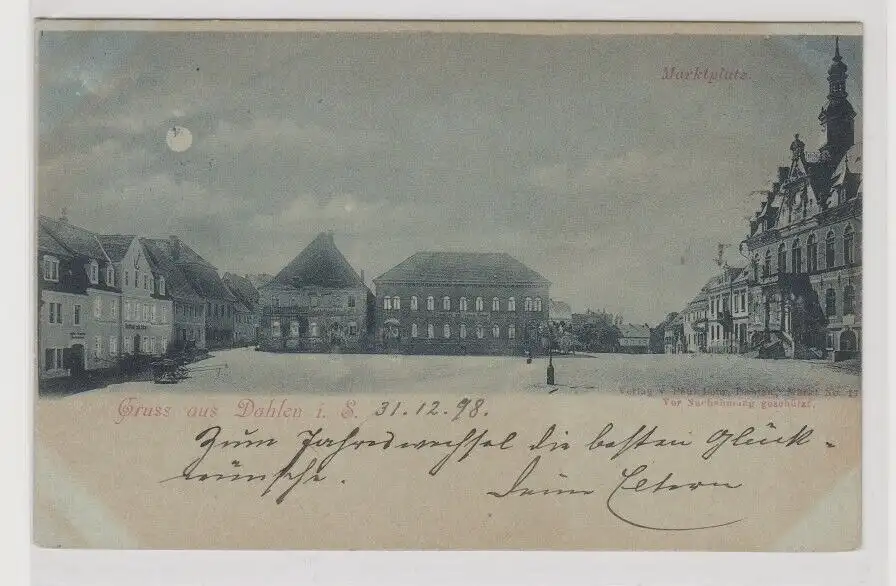 Marktplatz.
Verlag v.
Vor Nachahmung geschützt.
Gruss aus Dahlen i. S. 31.12.98.
Zum Jahreswechsel die besten Glück-
wünsche.
Deine Eltern